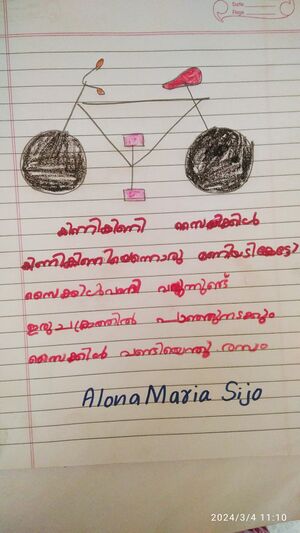 Date
Page
കിണികിണി സൈക്കിൾ
കിണികിണിയെന്നൊരു മണിയടികേട്ടോ
സൈക്കിൾവണ്ടി വരുന്നുണ്ട്
ഇരുചക്രത്തിൽ പാഞ്ഞുനടക്കും
സൈക്കിൾ വണ്ടിയെന്തു രസം
Alona Maria Sijo
2024/3/4 11:10